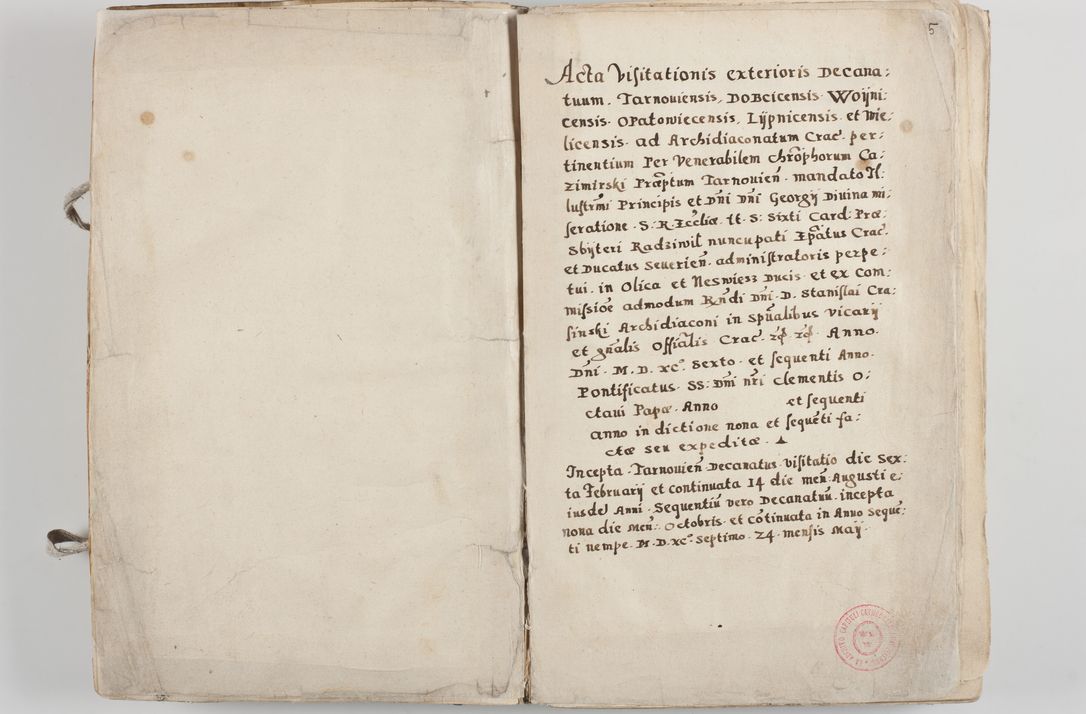 5
Acta Visitationis exterioris Decana:
tuum. Tarnouiensis, Dobcicensis. Woijni:
censis. Opatowiecensis, Lijpnicensis. et Wie:
licensis. ad Archidiaconatum Crac̄. per:
tinentium Per Venerabilem Chrõphorum Ca:
zimirski Præptum Tarnouień. mandato Il:
lustrmi Principis et Dni Dni Georgij Diuina mi:
seratione. S: R. Ecclīæ. tt. S: Sixti Card: Præ:
sbijteri Radziwil nuncupati Epatus Crac.
et Ducatus Seuerień. administratoris perpe:
tui. in Olica et Neswiesz Ducis. et ex Com:
missiōe admodum Rndi Dni. D. Stanislai Cra:
sinski Archidiaconi in Spualibus Vicarij
et gnalis Offialis Crac. Anno.
Dni. M. D. xc.° Sexto. et sequenti Anno.
Pontificatus. SS: Dni nri Clementis O:
ctaui Papæ. Anno et sequenti
anno in dictione nona et sequēti fa:
ctæ seu expeditæ.
Incepta. Tarnouień Decanatus. Visitatio die Sex:
ta Februarij et continuata 14 die meñ: Augusti e:
iusdē Anni. Sequentiū vero Decanatuū. incepta
nona die Meñ: Octobris. et cōtinuata in Anno Seque:
ti nempe. M. D. xc.° Septimo. 24. mensis Maij.